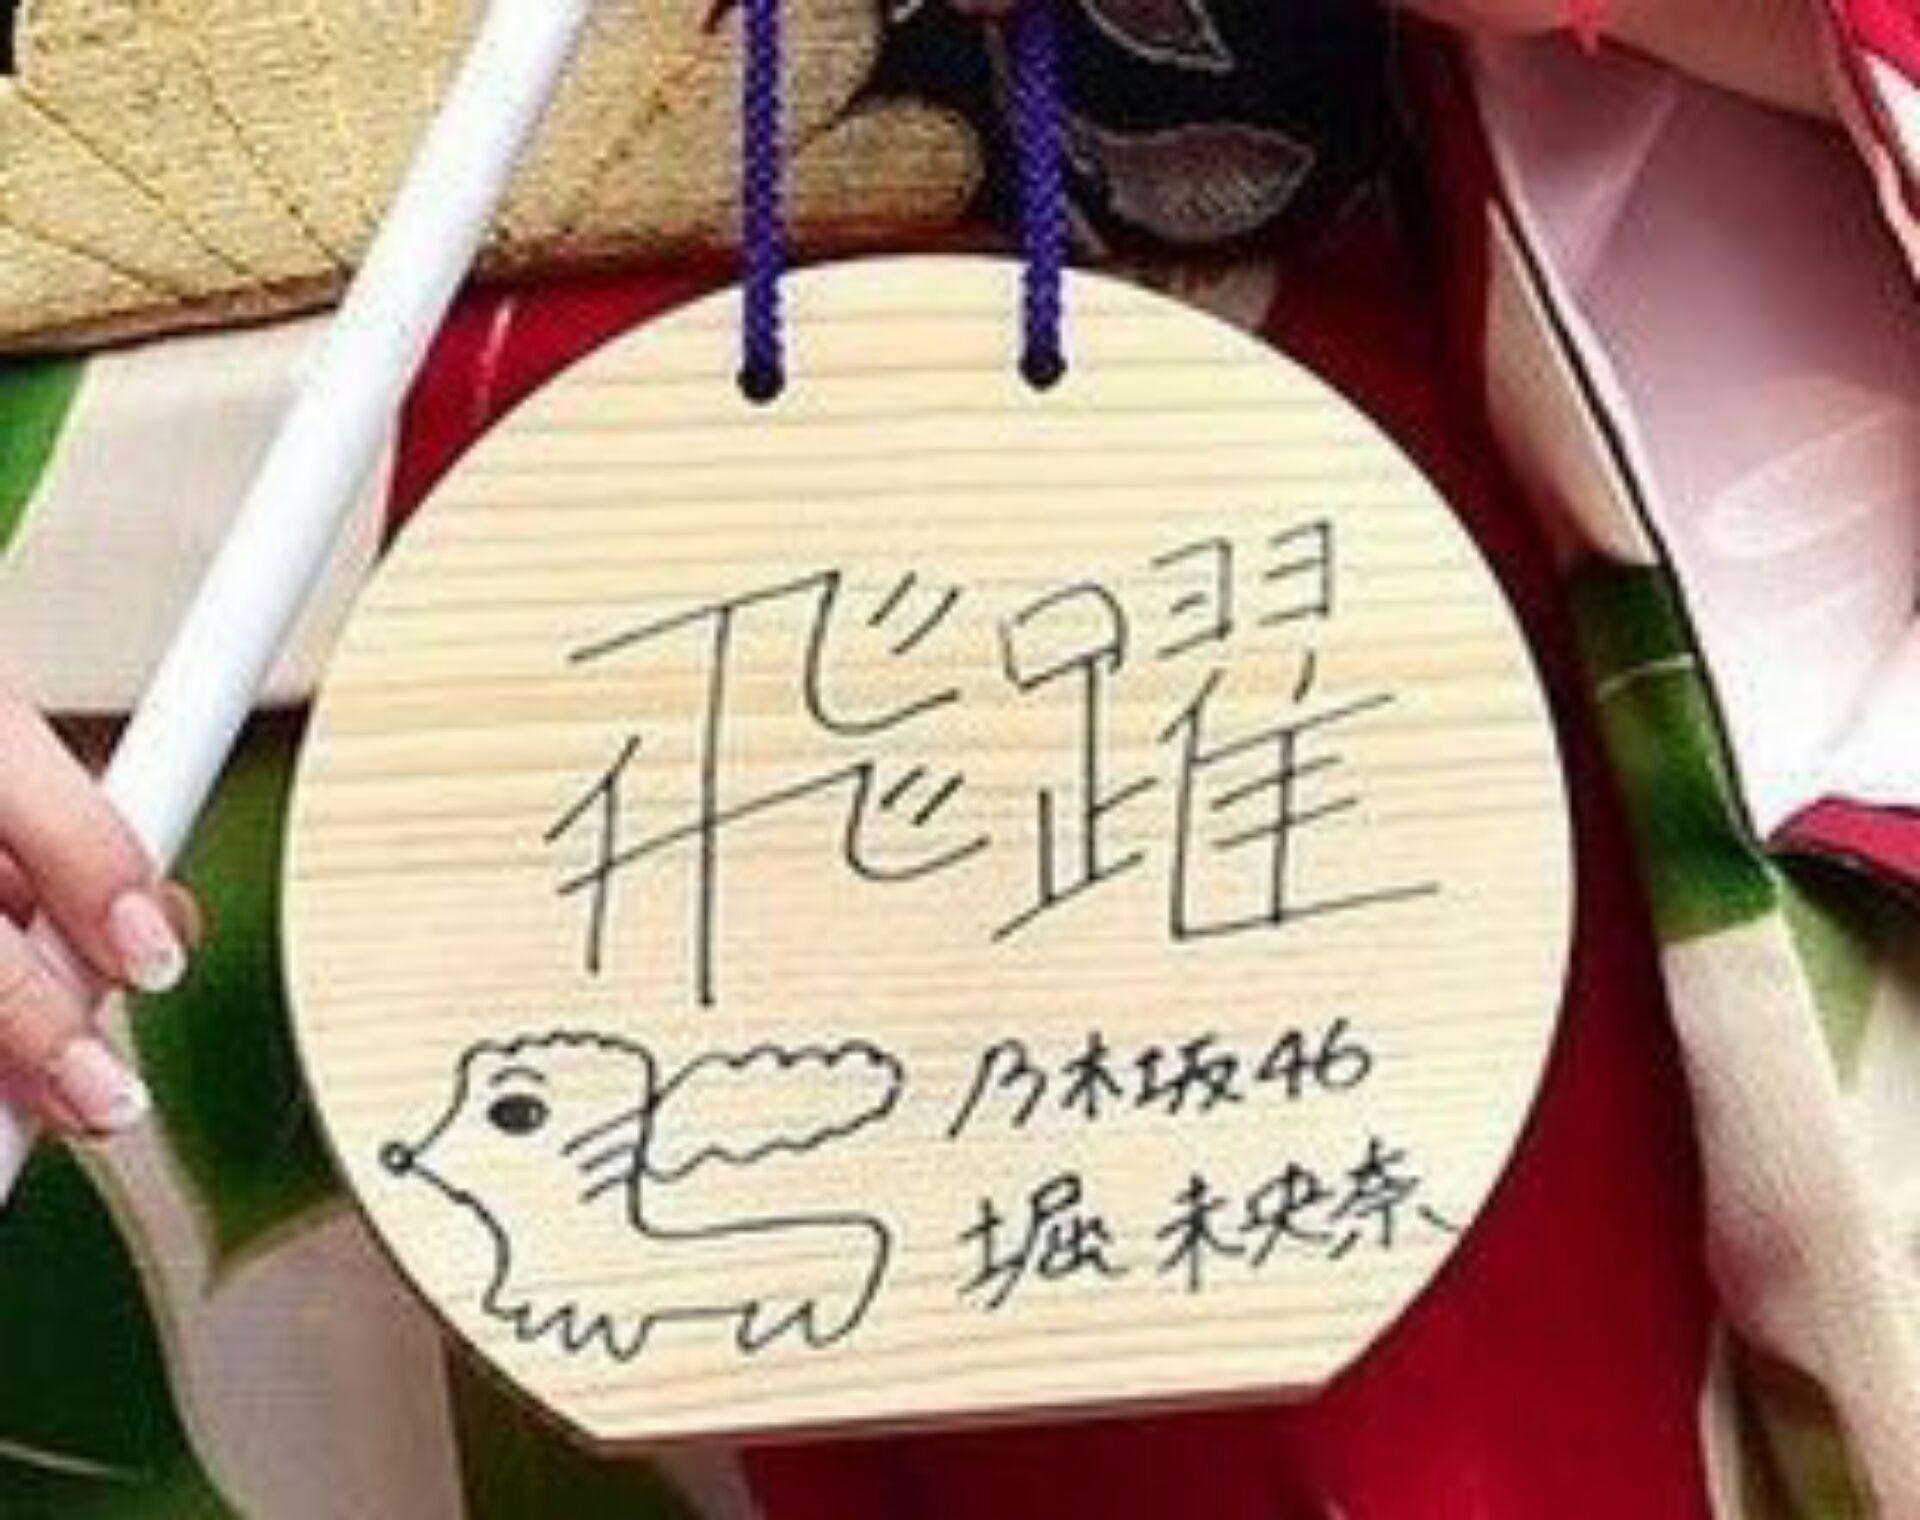 飛躍
乃木坂46
堀 未央奈